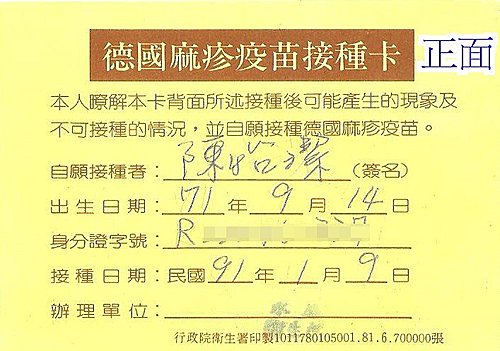 德國麻疹疫苗接種卡 正面
本人瞭解本卡背面所述接種後可能產生的現象及
不可接種的情況，並自願接種德國麻疹疫苗。
自願接種者：陳怡潔(簽名)
出生日期：71年9月14日
身分證字號：R
接種日期：民國91年1月9日
辦理單位：
行政院衛生署印製1011780105001.81.6.700000張